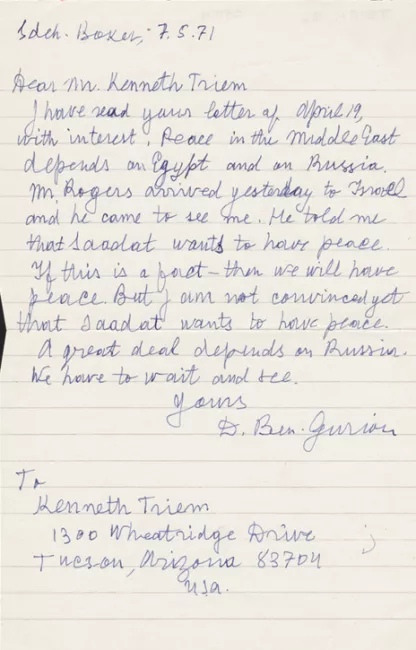 Sdeh. Boker, 7.5.71
Dear Mr. Kenneth Triem
I have read your letter of April 19,
with interest. Peace in the Middle East
depends on Egypt and on Russia.
Mr. Rogers arrived yesterday to Israel
and he came to see me. He told me
that Saadat wants to have peace.
If this is a fact – then we will have
peace. But I am not convinced yet
that Saadat wants to have peace.
A great deal depends on Russia.
We have to wait and see.
Yours
D. Ben-Gurion
To
Kenneth Triem
1300 Wheatridge Drive
Tucson, Arizona 83704
Usa.